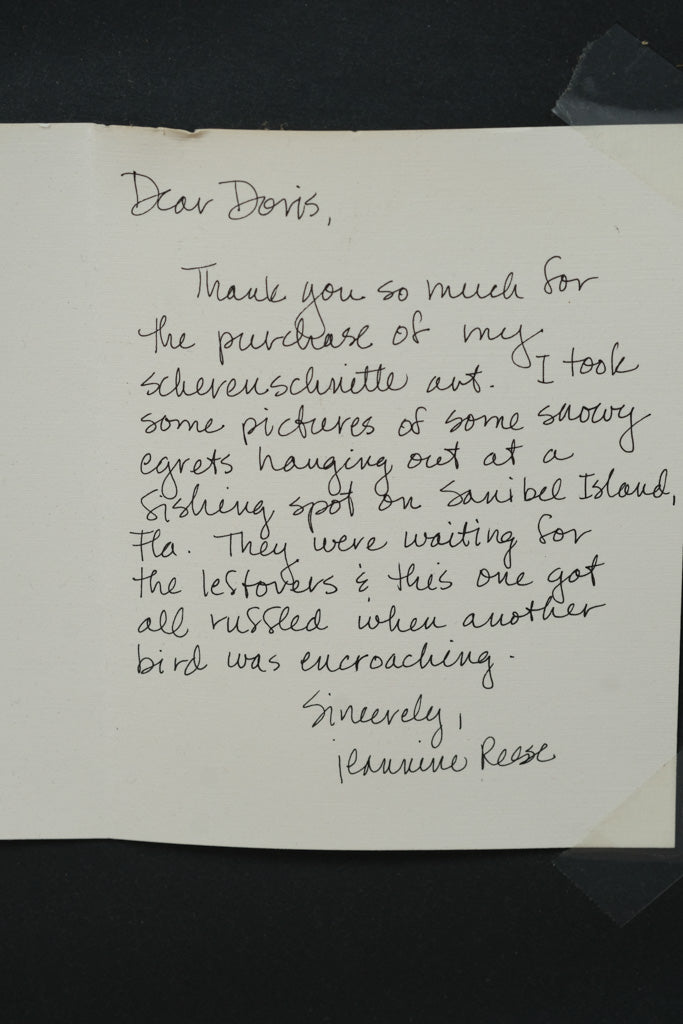 Dear Doris,
Thank you so much for
the purchase of my
scherenschnitte art. I took
some pictures of some snowy
egrets hanging out at a
fishing spot on Sanibel Island,
Fla. They were waiting for
the leftovers & this one got
all ruffled when another
bird was encroaching.
Sincerely,
Jeannine Reese